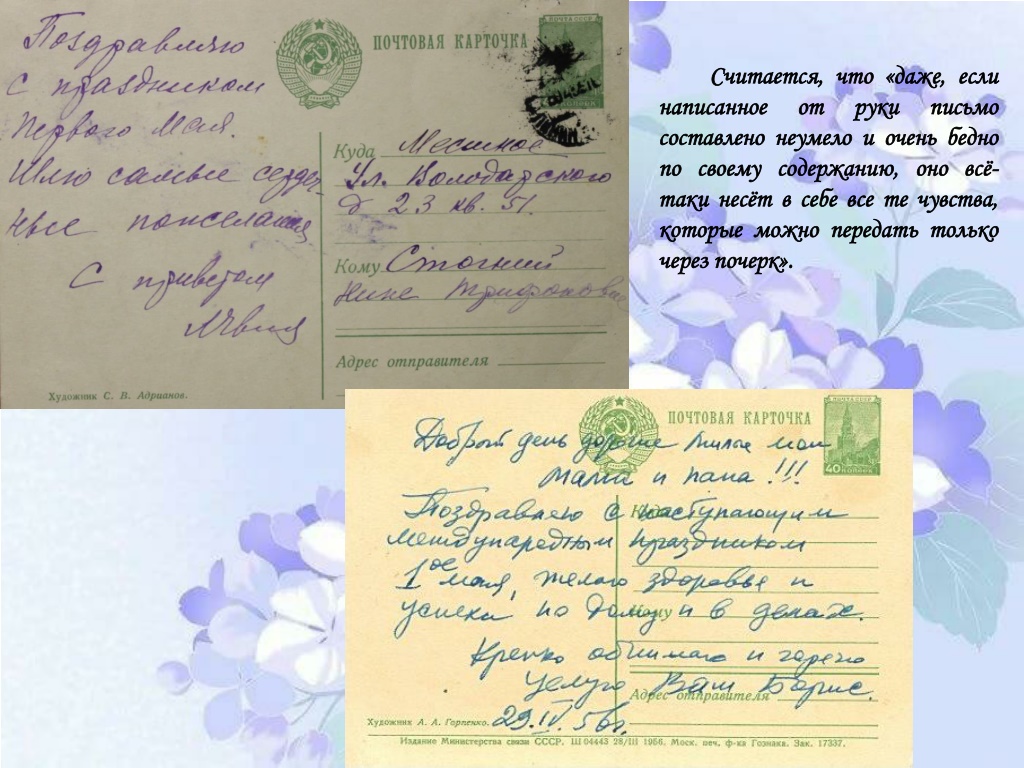 Поздравляю
с праздником
Первого Мая.
Шлю самые сердеч
ные пожелания
С приветом
ПОЧТОВАЯ КАРТОЧКА
ПОЧТА СССР
Куда Местное
Ул. Володарского
д 23 кв. 51.
Кому Стогний
Нине Трифоновне
Адрес отправителя
Художник С. В. Адрианов.
Считается, что «даже, если
написанное от руки письмо
составлено неумело и очень бедно
по своему содержанию, оно всё-
таки несёт в себе все те чувства,
которые можно передать только
через почерк».
ПОЧТОВАЯ КАРТОЧКА
ПОЧТА СССР
40 КОПЕЕК
Добрый день дорогие милые мои
мама и папа!!!
Поздравляю с наступающим
международным праздником
1ое мая, желаю здоровья и
успеха по дому и в делах.
Крепко обнимаю и горячо
целую Ваш Борис.
29.IV.56г.
Куда
Кому
Адрес отправителя
Художник А. А. Горпенко.
Издание Министерства связи СССР. Ш 04443 28/III 1956. Моск. печ. ф-ка Гознака. Зак. 17337.